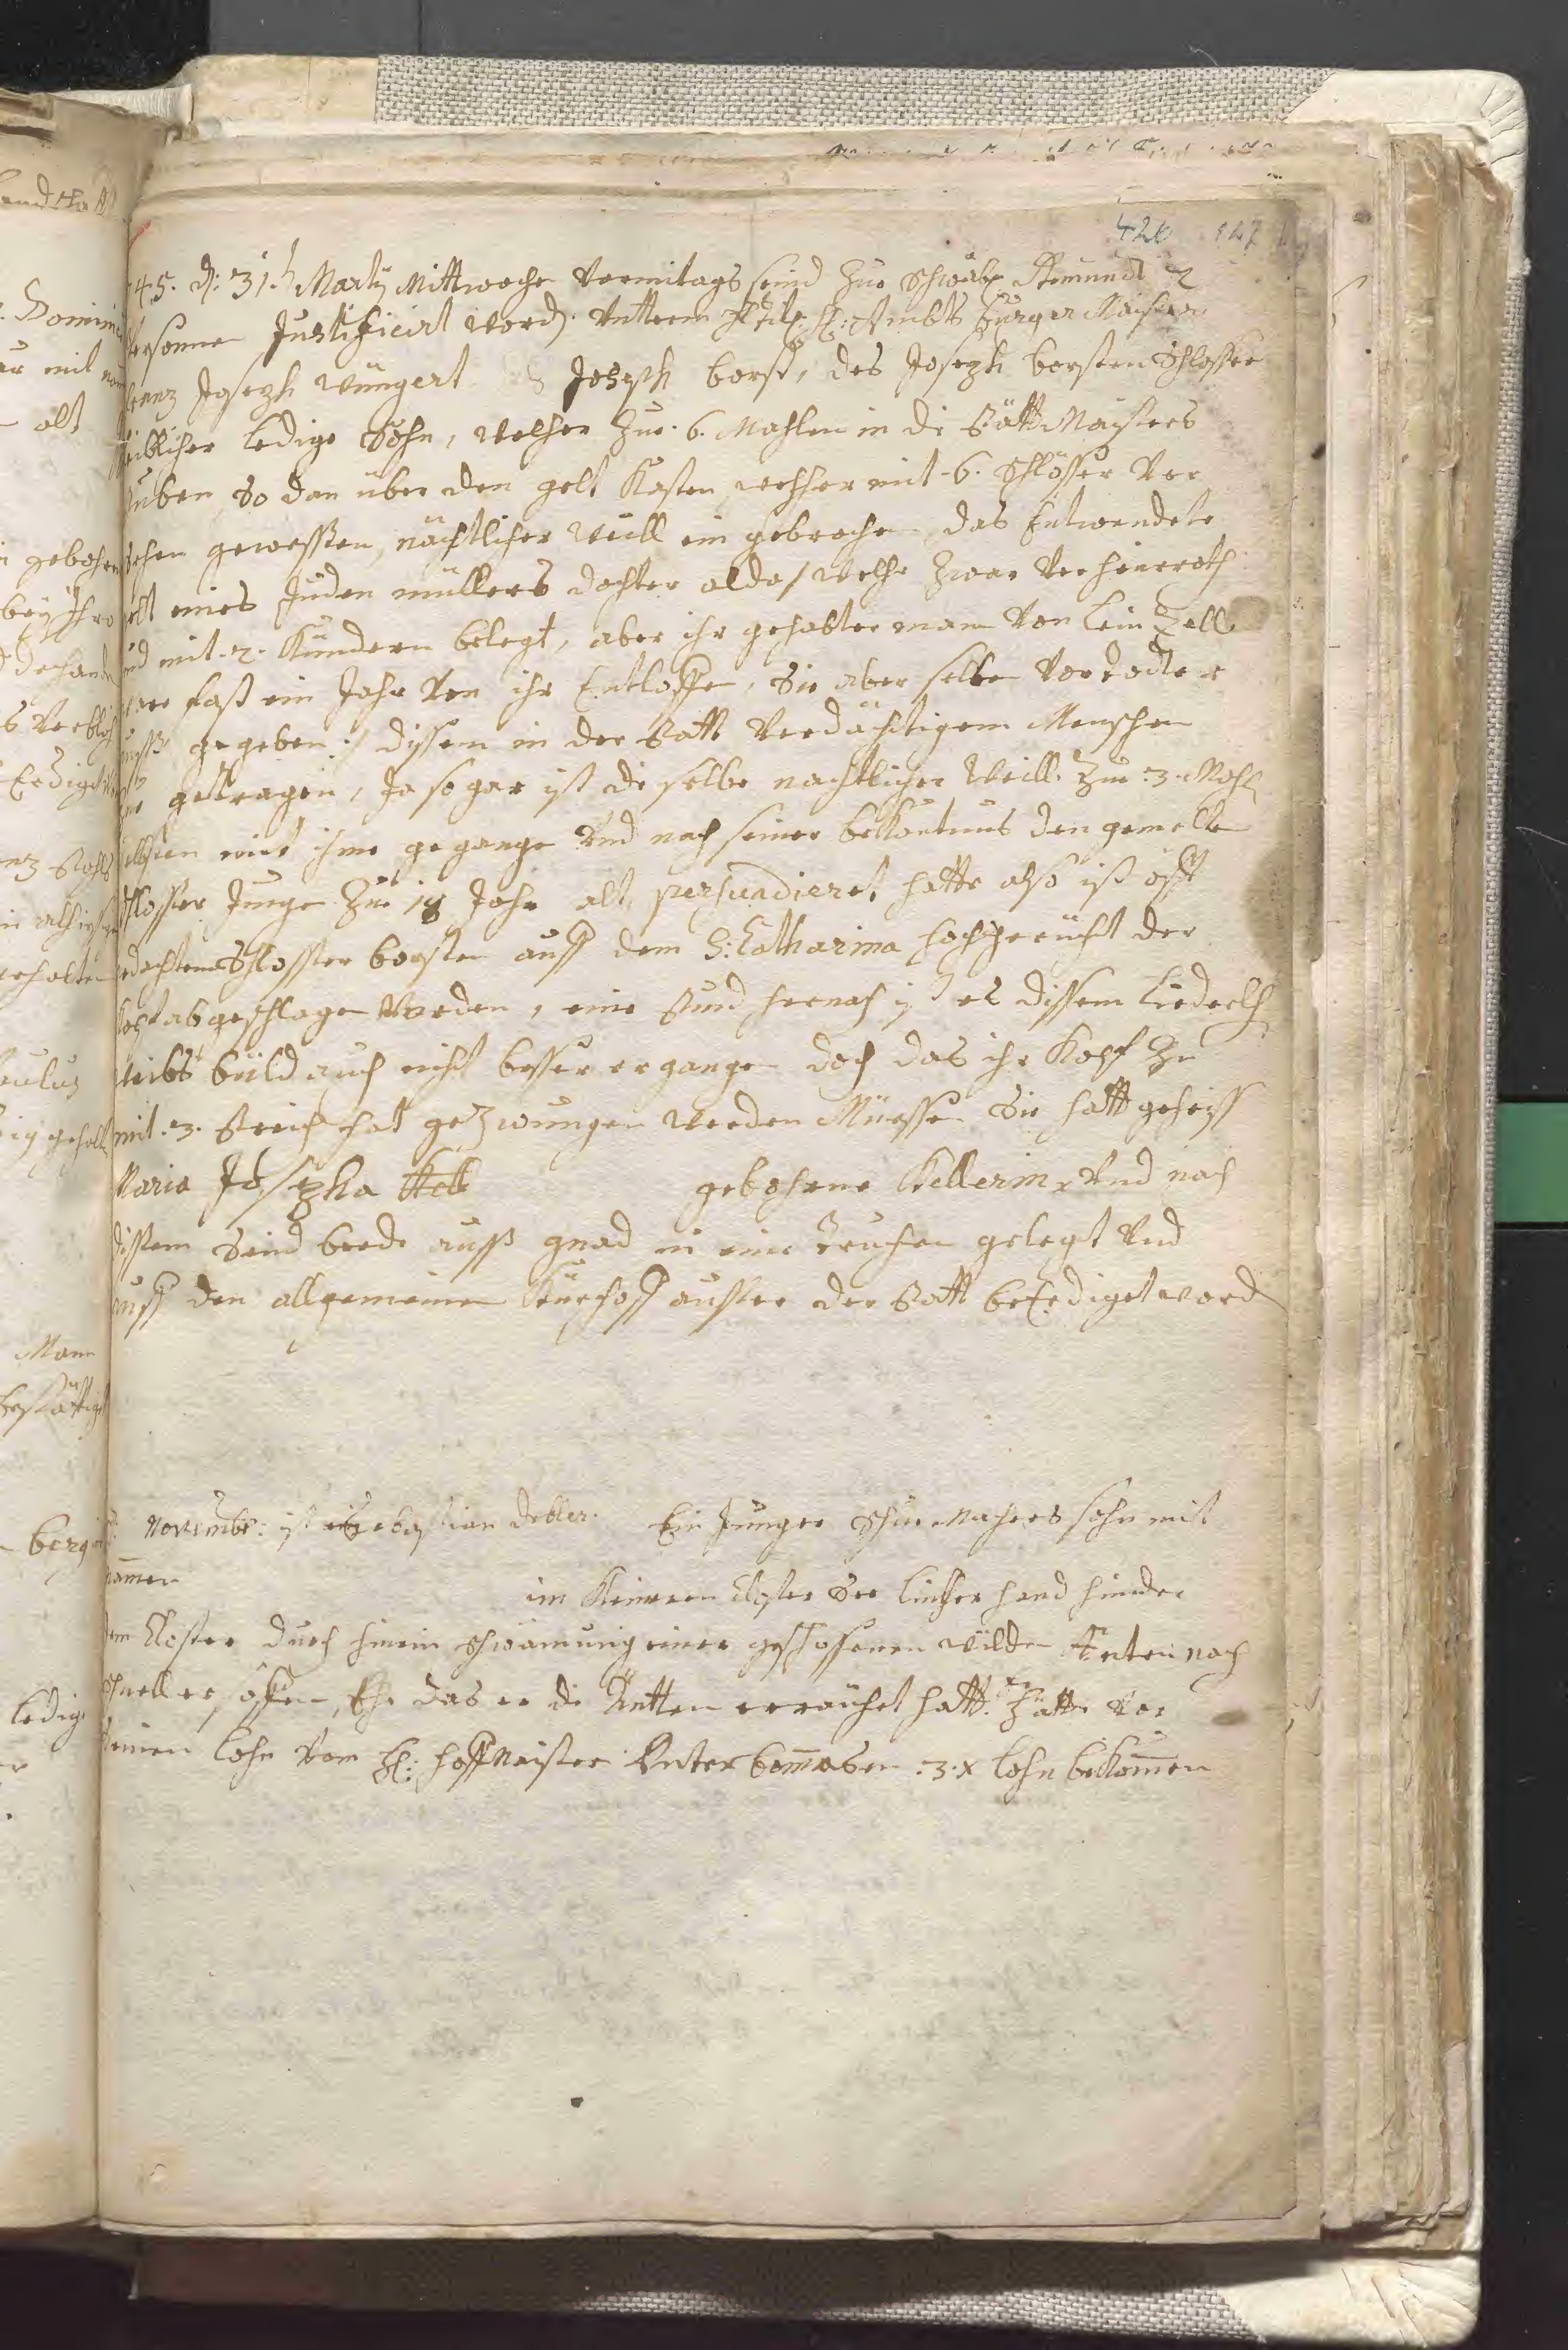 420 127
45. d: 31.t Martij Mittwochs Vormitags seind Zue Schwäb. Gemundt 2
Persohnen Justificirt word. Vnttern Titl: H: Ambts Burger Maister
Franz Joseph Wüngert Joseph borst, des Joseph borsten Schlosser
leiblicher ledige Sohn, welcher Zue 6. Mahlen in die Stätt Maisters
stuben, So dan über den gelt Kasten, welcher mit 6. Schlösser Ver
sehen gewessten, nächtlicher Weill ein gebrochen, das Entwendete
gelt eines Juden müllers dochter alda / welche zwar Verheüerath
und mit 2. Kündern belegt, aber ihr gehabter mann Von Lein Zell
fast ein Jahr Von ihr Entloffen, Sie aber selben Vor todter
auss gegeben :/ dyssem in der Statt Verdächtigem Menschen
getragen, Ja so gar ist die selbe nachtlicher Weill Zue 3. Mahl
selbsten mit ihme gegange Vnd nach seiner bekantnus den gemelten
Schlosser Junge Zue 18 Jahr alt persuadieret hatte also ist offt
gedachtem Schlosser borsten auff dem S: Catharina hochgericht der
Kopf abgeschlagen Worden, eine Stund hernach ist es dissem Liederlich
Weibs büld auch nicht besser ergangen doch das ihr Kopf Zu
mit 3. Streich hat gezwungen werden Müessen Sie hatt geheiss
Maria Josepha gebohrne Kellerin, Vnd nach
dissem Seind beede auss gnad in eine Truchen gelegt Vnd
auff den allgemeinen Kürchoff ausser der Statt beErdiget word
Novembr: ist Sebastian debler. Ein Junger Schue Machers sohn mit
nammen
im Kleineren Closter See lincker hand hinder
dem Closter durch hinein schwämung einer geschossenen wilden Enten nach
schnell ersoffen, Ehe das er die Äntten erraücht hatt. Hätte Vor
seinen lohn Vom H: hoffMaister 3. x lohn bekommen